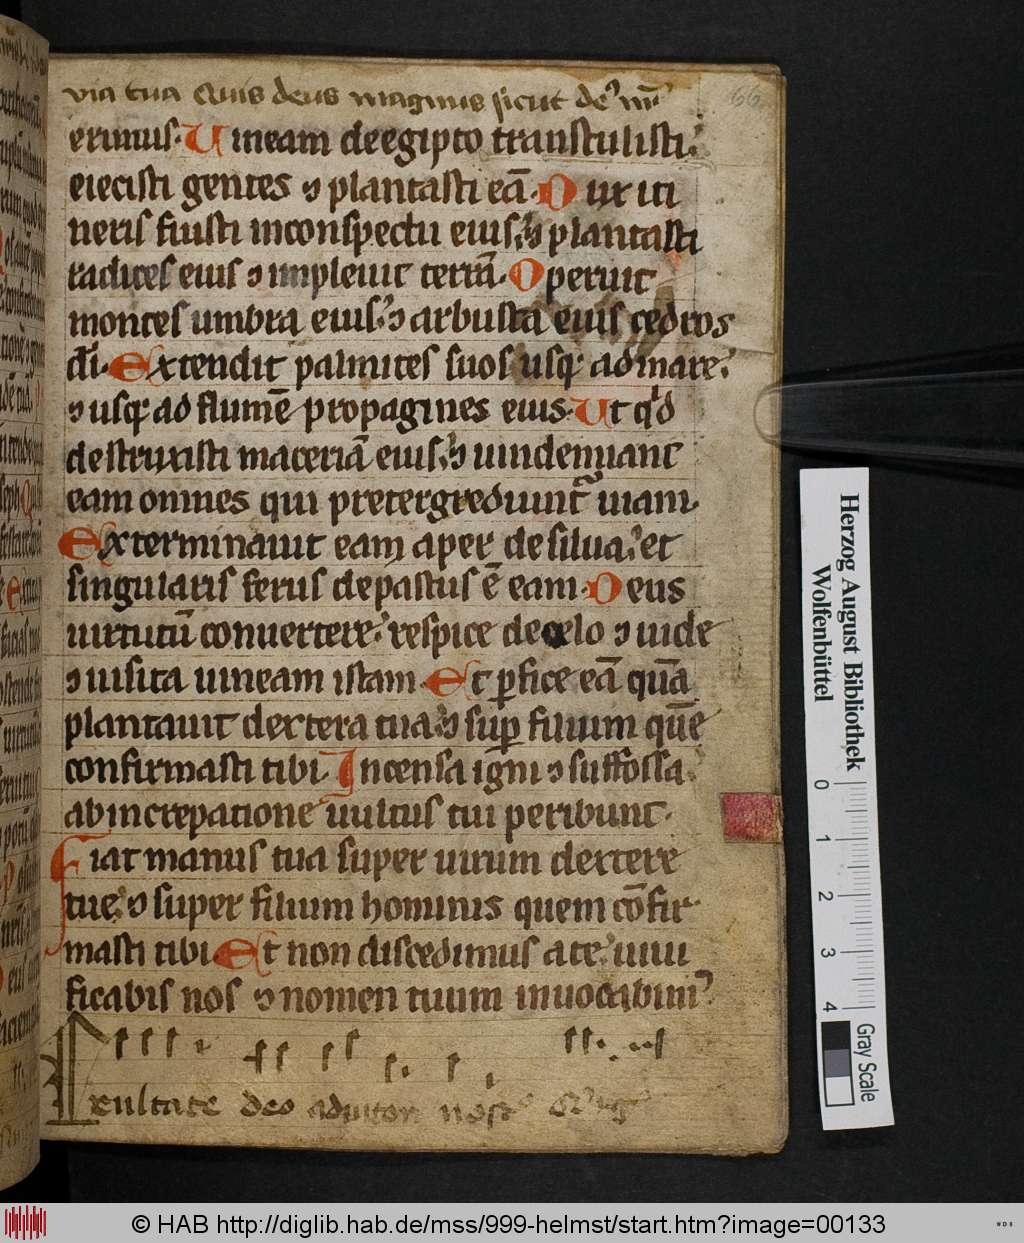 via tua Quis deus magnus sicut de᷒ nr̄
66
erimus. Uineam deegipto transtulisti:
eiecisti gentes ⁊ plantasti eā. Dux iti
neris fuisti inconspectu eius: ⁊ plantasti
radices eius ⁊ impleuit terrā. Operuit
montes umbra eius: ⁊ arbusta eius cedros
dī. Extendit palmites suos usq; ad mare:
⁊ usq; ad flumē propagines eius. Ut qͥd
destruxisti maceriā eius: ⁊ uindemiant
eam omnes qui pretergrediunt᷑ uiam.
Exterminauit eam aper de silua: et
singularis ferus depastus ē eam. Deus
uirtutū conuertere: respice de celo ⁊ uide
⁊ uisita uineam istam. Et ꝑfice eā quā
plantauit dextera tua: ⁊ suꝑ filium quē
confirmasti tibi. Incensa igni ⁊ suffossa:
ab increpatione uultus tui peribunt.
Fiat manus tua super uirum dextere
tue: ⁊ super filium hominis quem cōfir
masti tibi. Et non discedimus a te: uiui
ficabis nos ⁊ nomen tuum inuocabim᷒
Exultate deo adiutori nost᷑
Herzog August Bibliothek
Wolfenbüttel
0 1 2 3 4
Gray Scale
© HAB http://diglib.hab.de/mss/999-helmst/start.htm?image=00133
WDB